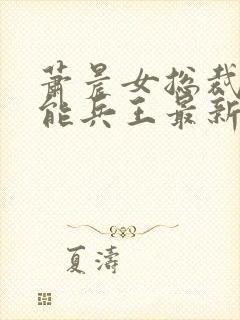 萧晨女总裁
能兵王最新
夏濤